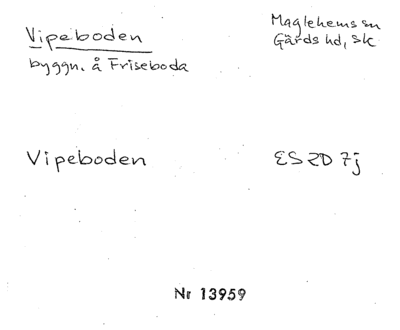 Vipeboden
Maglehems sn
Gärds hd, Sk
byggn. å Friseboda
Vipeboden
ES 2D 7j
Nr 13959